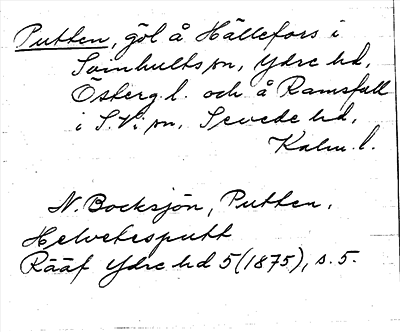 Putten, göl å Hällefors i
Svinhults sn, Ydre hd,
Österg l. och å Ramsfall
i S. Vi sn, Sevede hd,
Kalm. l.
N. Bocksjön, Putten,
Helvetesputt
Rääf Ydre hd 5 (1875), s. 5.